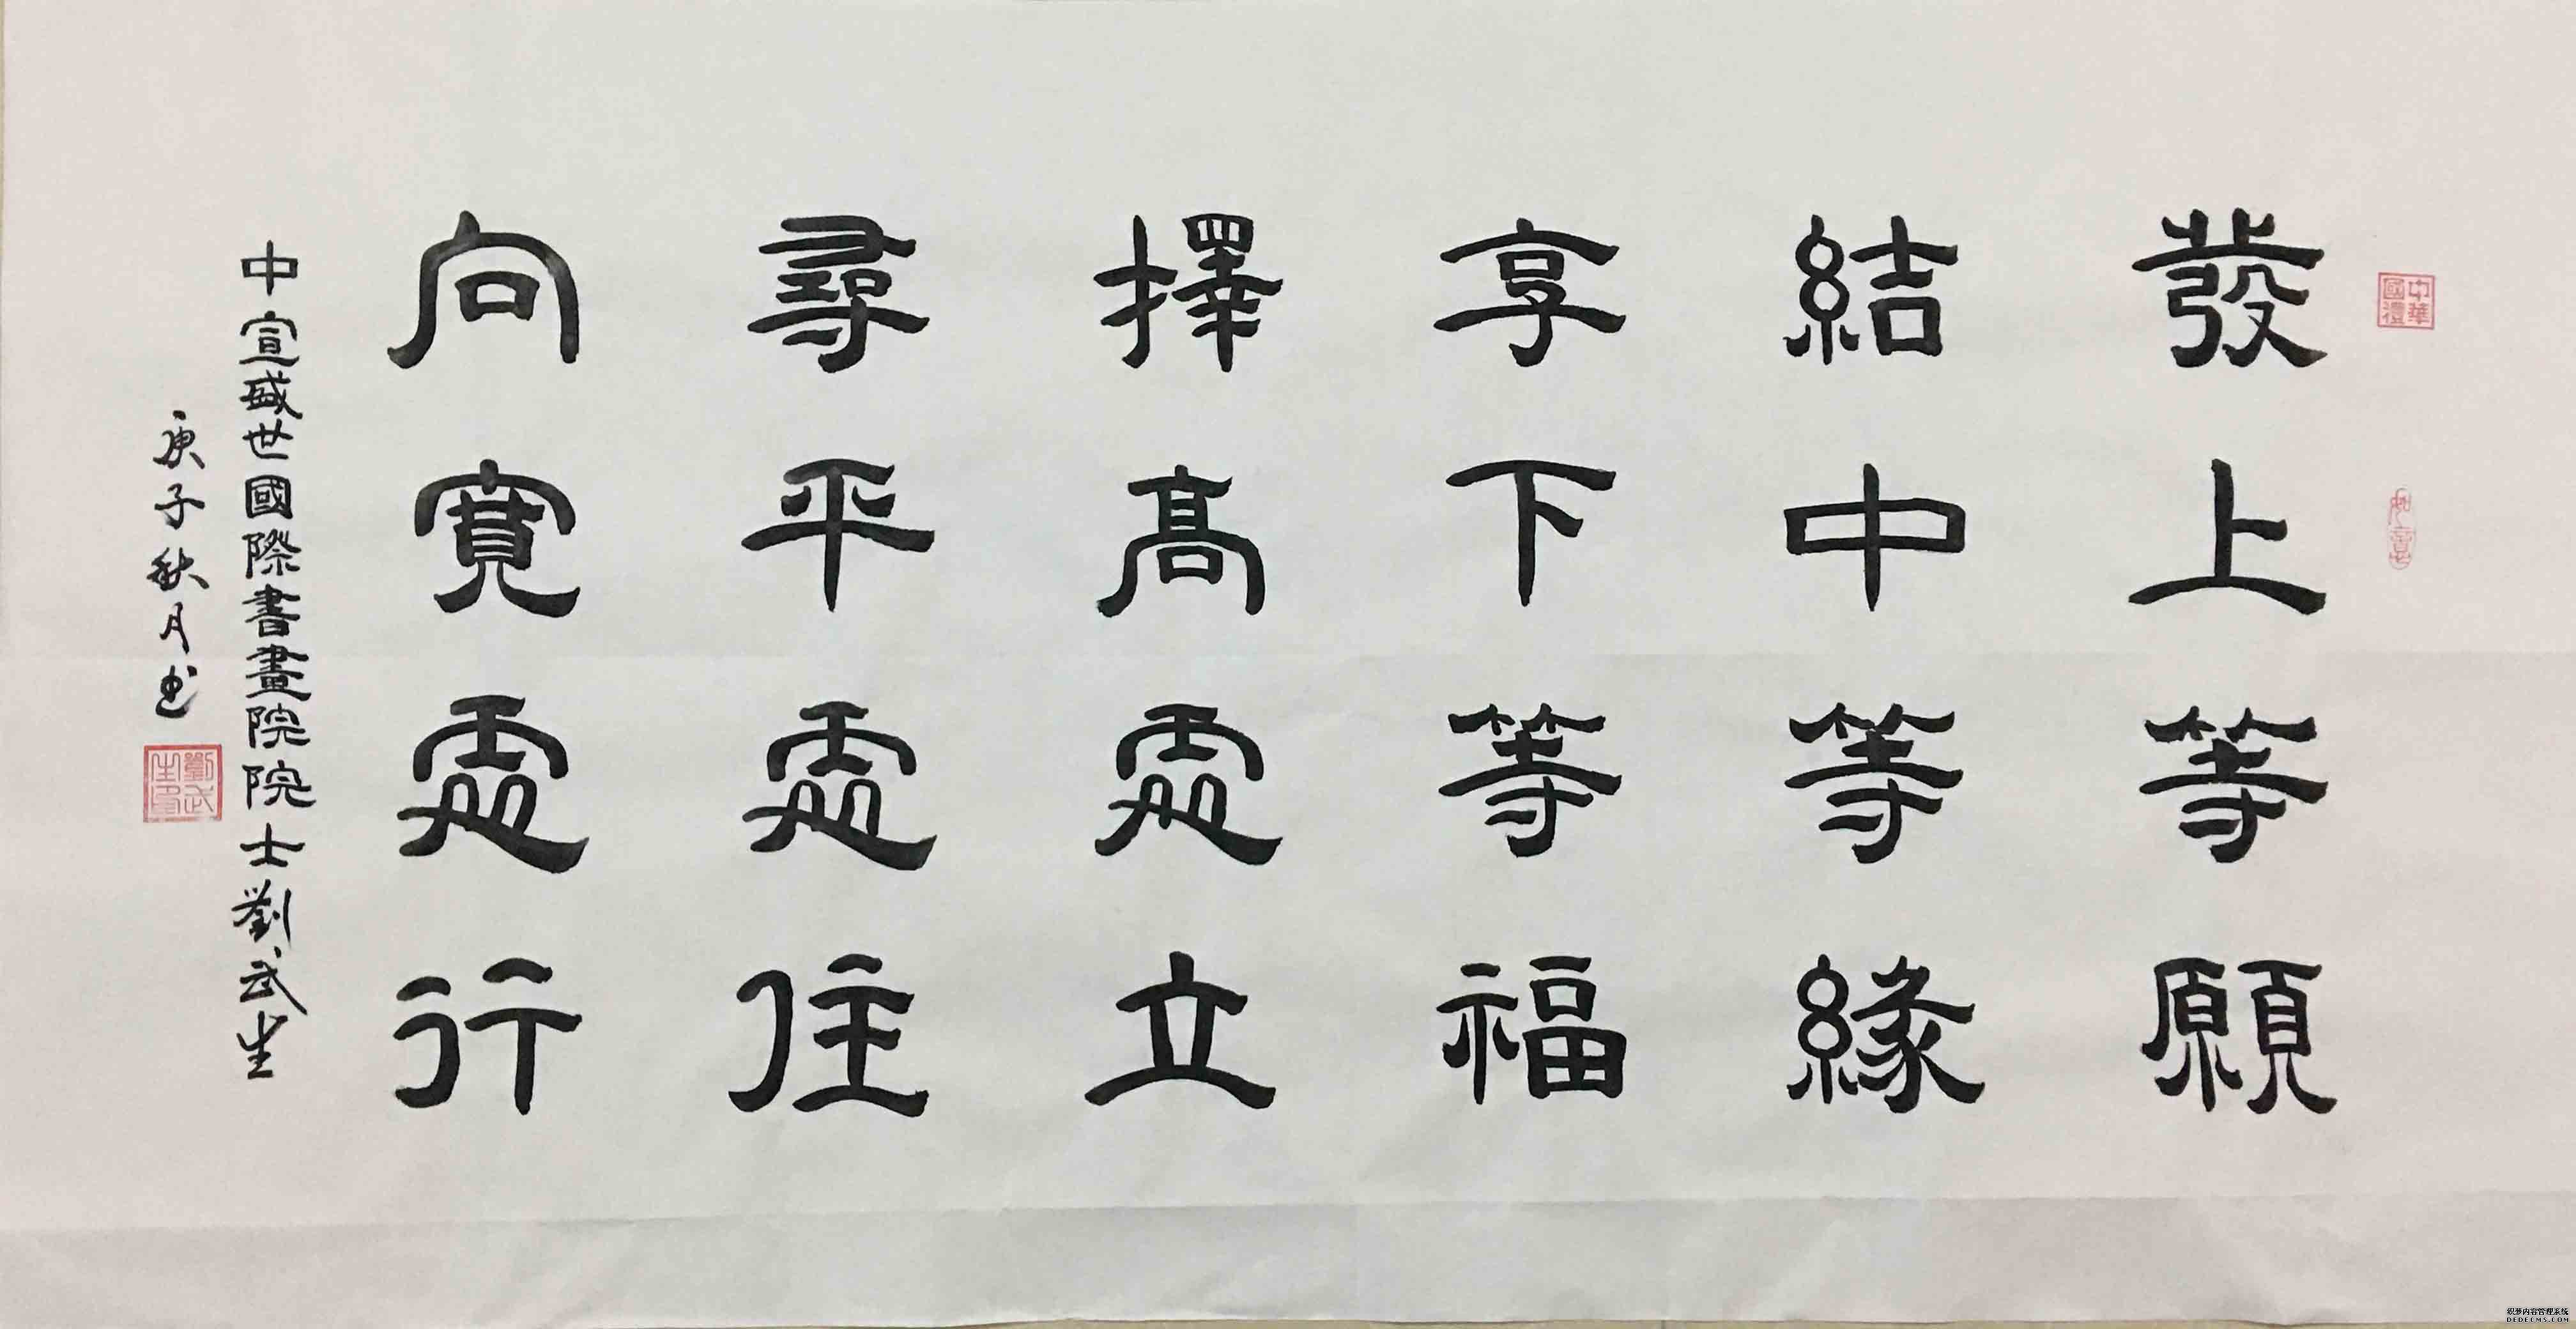 中華國禮
如意
發上等願
結中等緣
享下等福
擇高處立
尋平處住
向寬處行
中宣盛世國際書畫院院士劉武生
庚子秋月書
劉武生印
织梦内容管理系统
DEDECMS.COM